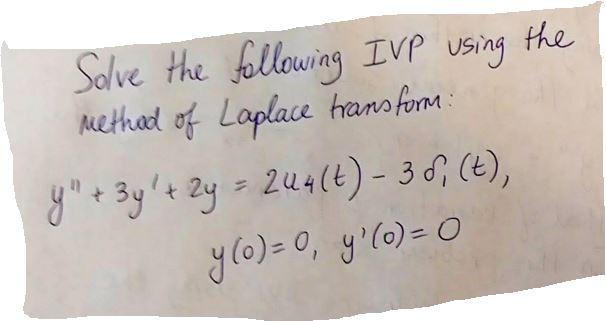 Solve the following IVP using the
method of Laplace transform:
y'' + 3y' + 2y = 2u₄(t) - 3δ₁(t),
y(0)=0, y'(0)=0